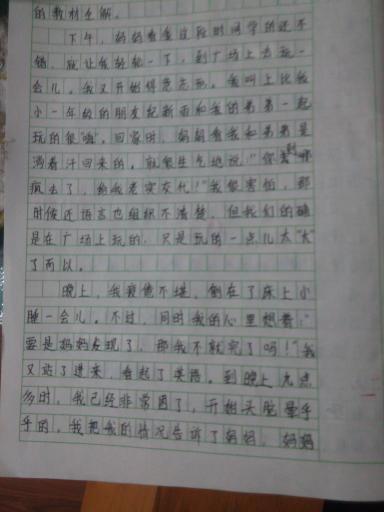 的教材全解。
下午，妈妈看我这段时间学的还不
错，就让我轻松一下，到广场上去玩一
会儿。我又开始得意忘形。我叫上比我
小一年级的朋友纪新雨和我的弟弟一起
玩的很嗨。回家时，妈妈看我和弟弟是
淌着汗回来的，就很生气地说："你到哪
疯去了，给我老实交代！"我很害怕，那
时候还语言也组织不清楚。但我们的确
是在广场上玩的，只是玩的一点儿太"大"
了而以。
晚上，我疲惫不堪，倒在了床上小
睡一会儿。不过，同时我的心里想着："
要是妈妈发现了，那我不就完了吗！"我
又站了进来，看起了英语。到晚上九点
多时，我已经非常困了，开始头脸晕乎
乎的，我把我的情况告诉了妈妈，妈妈